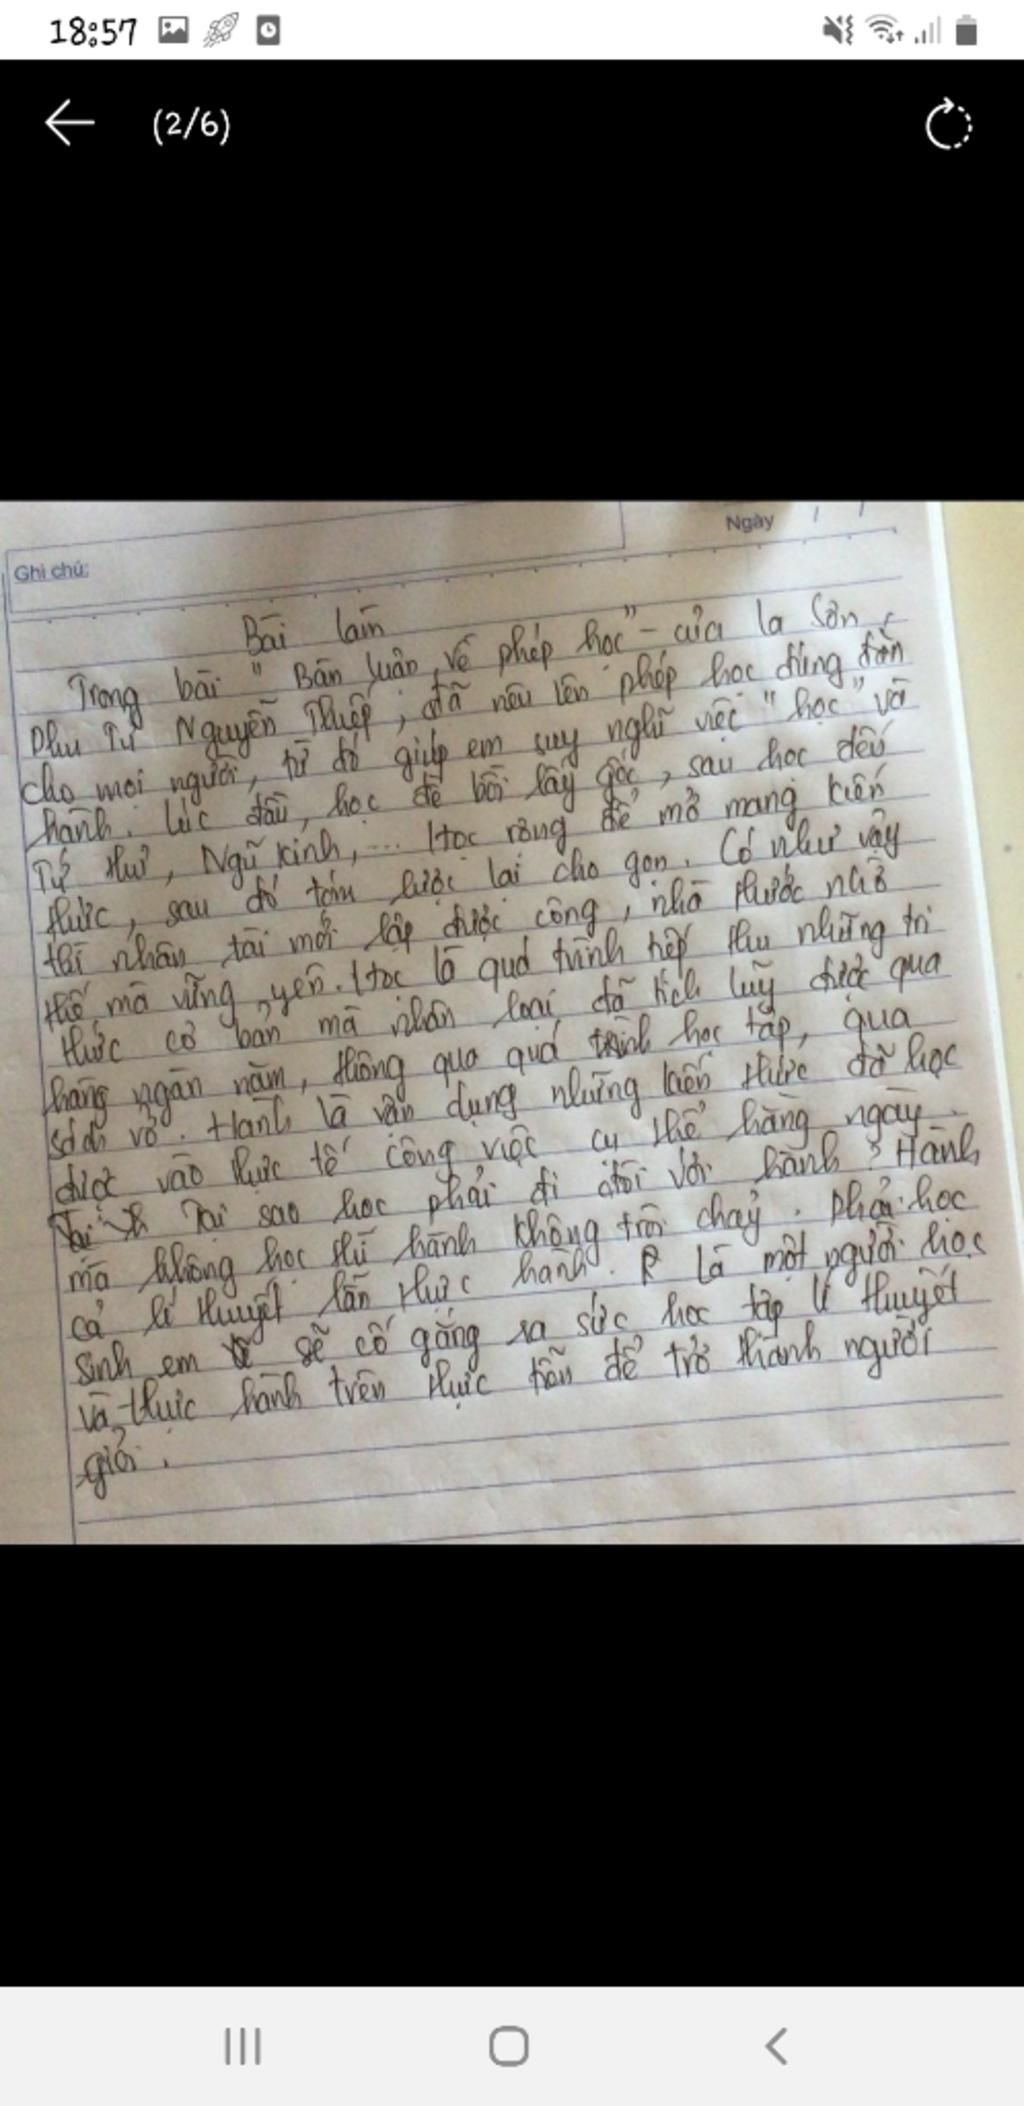 18:57
(2/6)
Ngày
Ghi chú:
Bài làm
Trong bài "Bàn luận về phép học" - của La Sơn
Phu Tử Nguyễn Thiếp, đã nêu lên phép học đúng đắn
cho mọi người, từ đó giúp em suy nghĩ việc "học" và
hành. Lúc đầu, học để bồi lấy gốc, sau học đến
Tứ thư, Ngũ kinh, ... Học rộng để mở mang kiến
thức, sau đó tóm lược lại cho gọn. Có như vậy
thì nhân tài mới lập được công, nhà nước nhờ
thế mà vững yên. Học là quá trình tiếp thu những tri
thức cơ bản mà nhân loại đã tích luỹ được qua
hàng ngàn năm, thông qua quá trình học tập, qua
sách vở. Hành là vận dụng những kiến thức đã học
được vào thực tế công việc cụ thể hàng ngày.
Tại sao học phải đi đôi với hành? Hành
mà không học thì hành không trôi chảy. Phải học
cả lí thuyết lẫn thực hành. Là một người học
sinh em sẽ cố gắng ra sức học tập lí thuyết
và thực hành trên thực tiễn để trở thành người
giỏi.